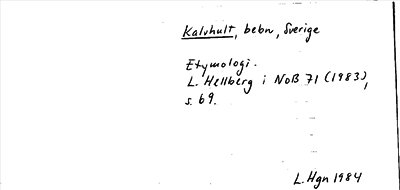 Kalvhult, bebn, Sverige
Etymologi.
L. Hellberg i NoB 71 (1983),
s. 69.
L. Hgn 1984